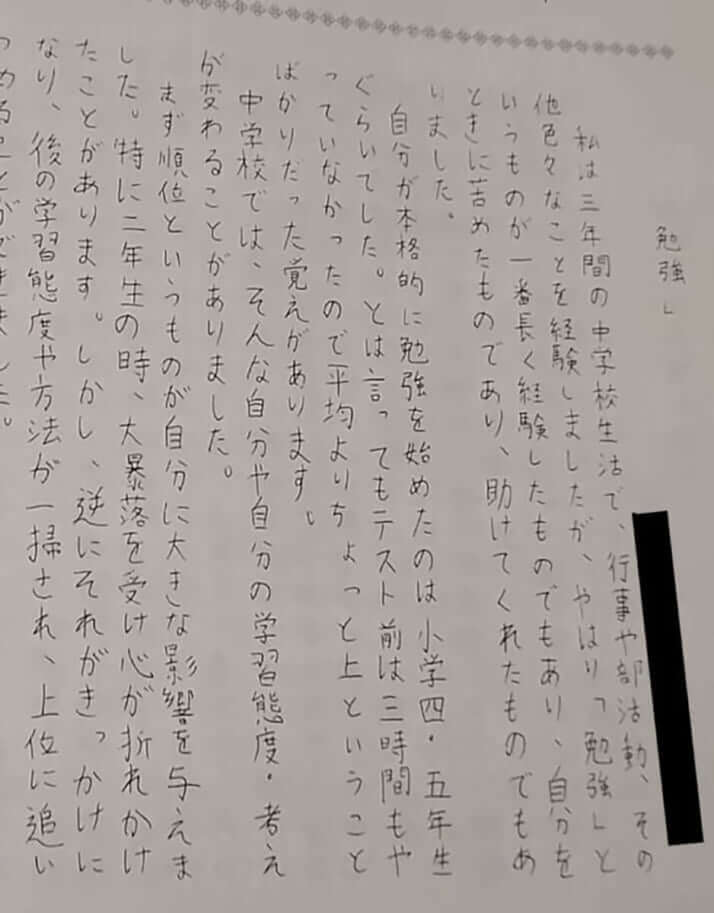 勉強」
私は三年間の中学校生活で、行事や部活動、その
他色々なことを経験しましたが、やはり「勉強」と
いうものが一番長く経験したものでもあり、自分を
ときに苦めたものであり、助けてくれたものでもあ
りました。
自分が本格的に勉強を始めたのは小学四・五年生
ぐらいでした。とは言ってもテスト前は三時間もや
っていなかったので平均よりちょっと上ということ
ばかりだった覚えがあります。
中学校では、そんな自分や自分の学習態度・考え
が変わることがありました。
まず順位というものが自分に大きな影響を与えま
した。特に二年生の時、大暴落を受け心が折れかけ
たことがあります。しかし、逆にそれがきっかけに
なり、後の学習態度や方法が一掃され、上位に追い
つめることができました。